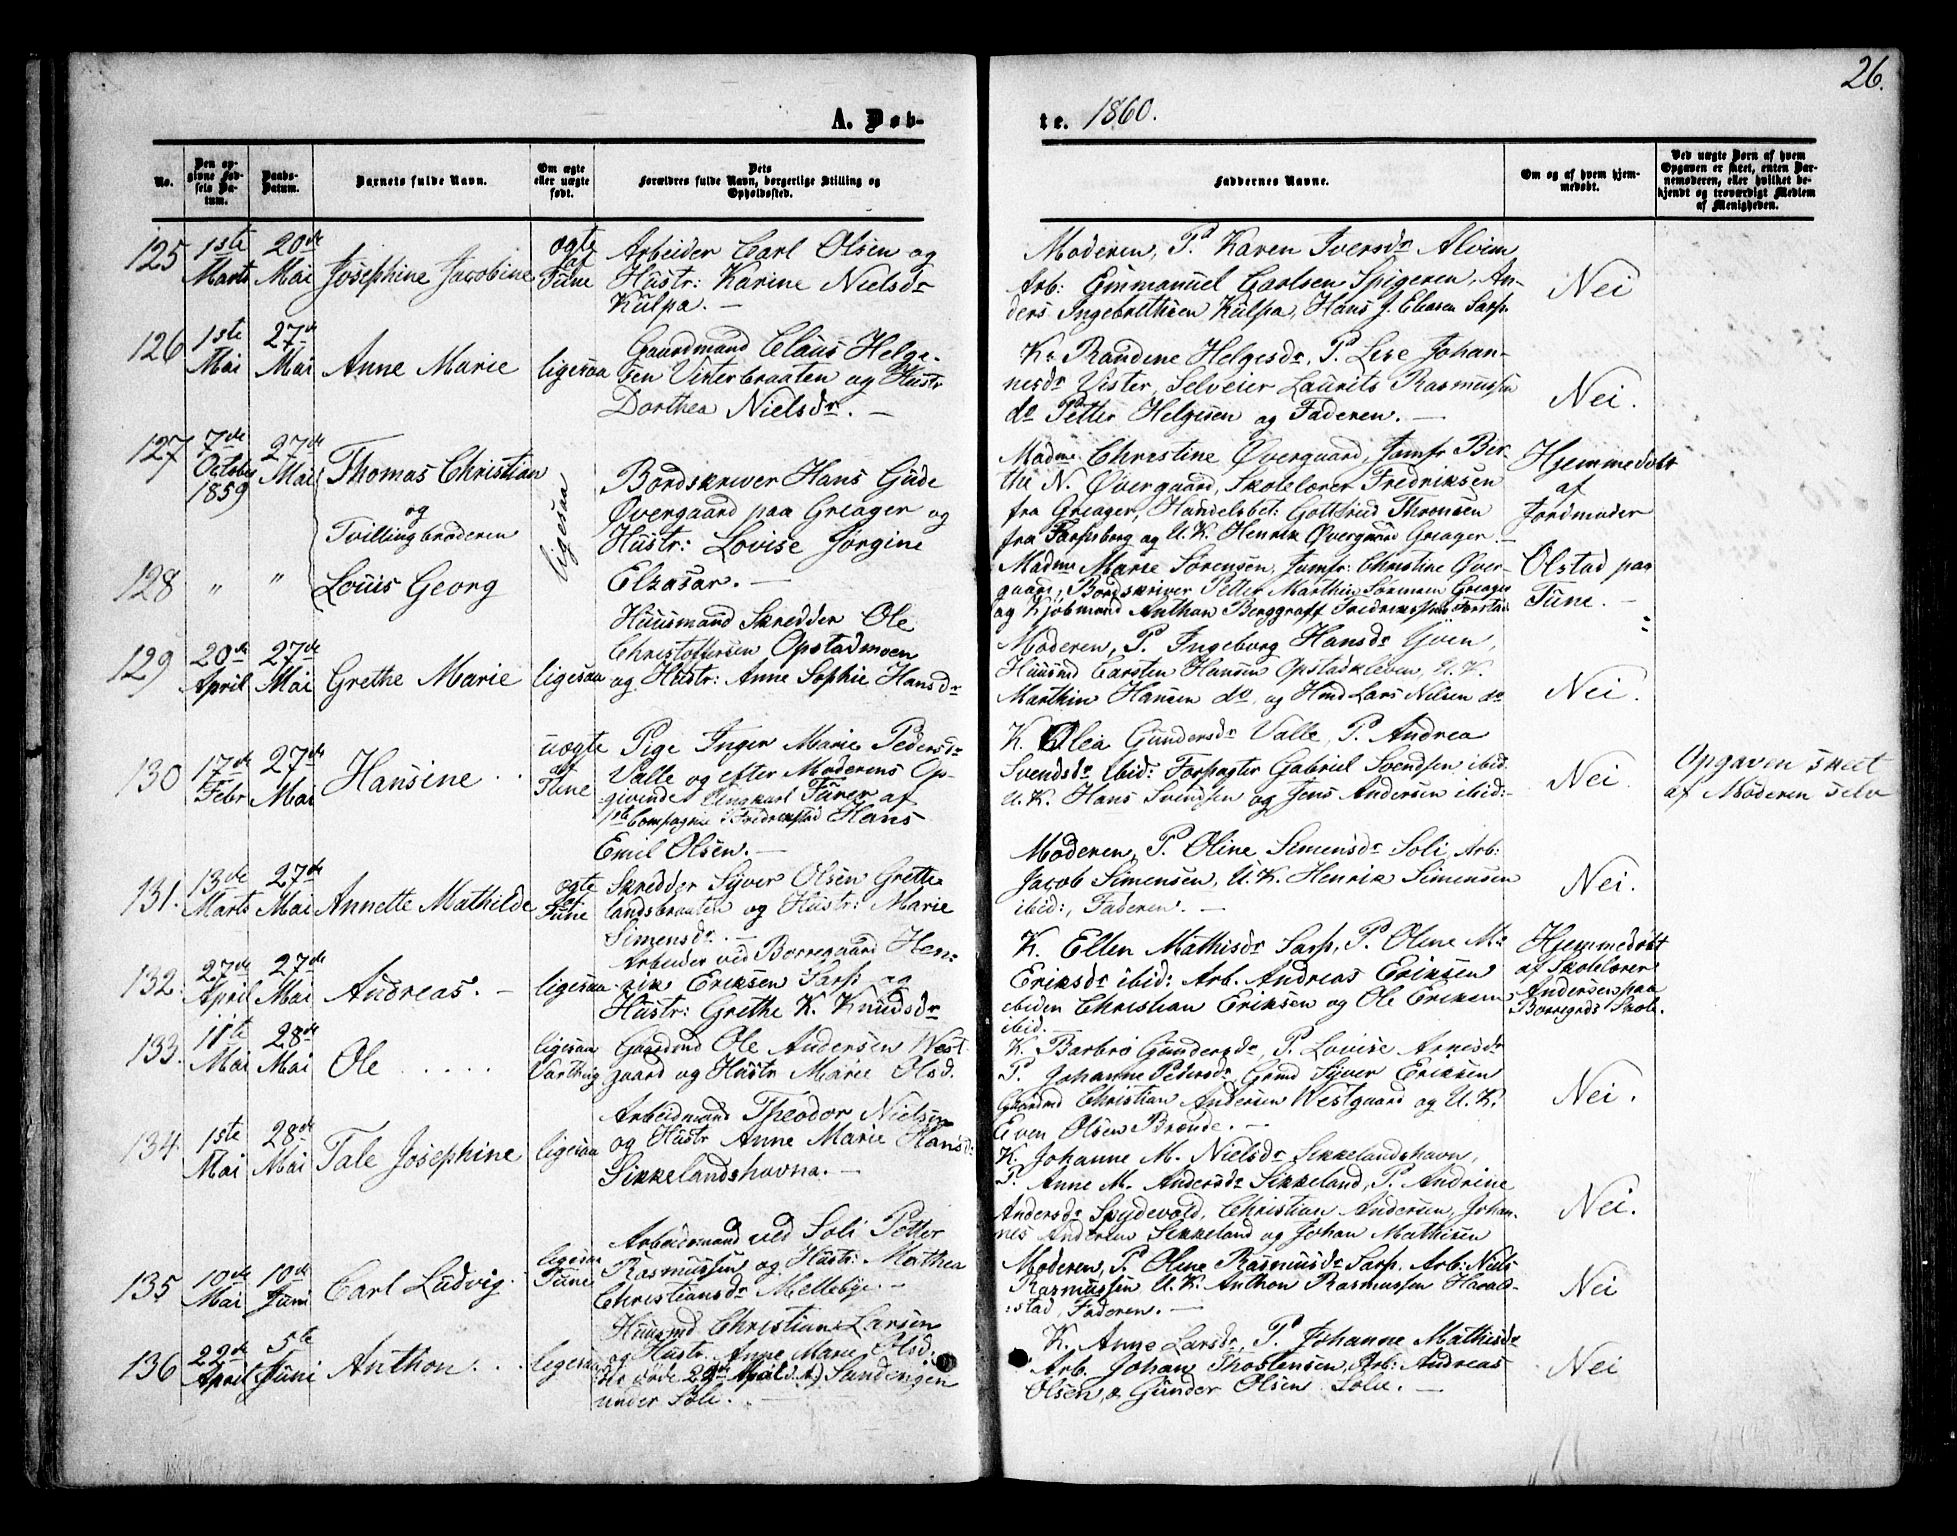 26.
A. Døb-
te. 1860.
No.
Den op-
givne Fød-
sels Da-
tum.
Daabs-
Datum.
Barnets fulde Navn.
Om ægte
eller uægte
født.
Dets
Forældres fulde Navn, borgerlige Stilling og
Opholdssted.
Faddernes Navne.
Om og af hvem hjem-
medøbt.
Ved uægte Børn af hvem
Opgaven er skeet, enten Bar-
nemoderen, eller hvilket be-
kjendt og troværdigt Medlem
af Menigheden.
125
1ste
Marts
20de
Mai
Josephine Jacobine
ægte
af
Tune
Arbeider Carl Olsen og
Hustr: Karine Nielsdr
Kulpa. —
Moderen, P. Karen Iversdr Alvim
Arb: Emmanuel Carlsen Spigeren, An-
ders Ingebrethsen Kulpa, Hans J. Eliasen Sarp.
Nei
126
1ste
Mai
27de
Mai
Anne Marie
ligesaa
Gaardmand Claus Helge-
sen Visterbraaten og Hustr
Dorthea Nielsdr. —
K. Randine Helgesdr, P. Lise Johan-
nesdr Vister, Selveier Laurits Rasmussen
do Petter Helgesen og Faderen. —
Nei.
127
7de
October
1859
27de
Mai
Thomas Christian
og
Tvillingbroderen
ligesaa
Bordskriver Hans Gude
Øvergaard paa Greager og
Hustr: Lovise Jorgine
Elzasar. —
Madme Christine Øvergaard, Jomfr Ber-
the N. Øvergaard, Skolelærer Fredriksen
fra Greager, Handelsbet: Gottfred Thronsen
fra Sarpsborg og U. K. Henrik Øvergaard Greager —
Hjemmedøbt
af
Jordmoder
128
"
"
Louis Georg
Madme Marie Sørensen, Jomfr: Christine Øver-
gaard, Bordskriver Petter Marthin Sørensen Greager
og Kjøbmand Anthon Berggraff Fredrikstad
Ølstad paa
Tune. —
129
20de
April
27de
Mai
Grethe Marie
ligesaa
Huusmand Skredder Ole
Christoffersen Opstadmoen
og Hustr: Anne Sophie Hansdr
Moderen, P. Ingeborg Hansdr Gjøen,
Huusmd Carsten Hansen Opstadkleven, U. K.
Marthin Hansen do, og Hmd Lars Nilsen do
Nei.
130
17de
Febr
27de
Mai
Hansine
uægte
af
Tune
Pige Inger Marie Pedersdr
Valle og efter Moderens Op-
givende Ungkarl Furer af
Compagnie i Fredrikstad Hans
Emil Olsen. —
K. Olea Gundersdr Valle, P. Andrea
Svendsdr ibid: Forpagter Gabriel Svendsen ibid
U. K. Hans Svendsen og Jens Andersen ibid: —
Nei.
Opgaven skeet
af Moderen selv
131.
13de
Marts
27de
Mai
Annette Mathilde
ægte
af
Tune
Skredder Syver Olsen Grette-
landsbraaten og Hustr: Marie
Simensdr. —
Moderen, P. Oline Simensdr Soli, Arb:
Jacob Simensen, U. K. Henrik Simensen
ibid:, Faderen. —
Nei.
132.
27de
April
27de
Mai
Andreas. —
ligesaa
Arbeider ved Borregaard Hen-
rik Eriksen Sarp og
Hustr: Grethe K. Knudsdr
K. Ellen Mathisdr Sarp, P. Oline M.
Eriksdr ibid: Arb. Andreas Eriksen
ibiden Christian Eriksen og Ole Eriksen
ibid. —
Hjemmedøbt
af Skolelærer
Andersen paa
Borregrds Skole.
133.
11te
Mai
28de
Mai
Ole
ligesaa
Varteig
Gaardmd Ole Andersen West-
gaard og Hustr Marie Olsd.
K. Barbro Gundersdr, P. Lovise Arnesdr
P. Johanne Pedersdr Grmd Syver Eriksen
Gaardmd Christian Andersen Westgaard og U. K.
Even Olsen Brønde. —
Nei.
134.
1ste
Mai
28de
Mai
Tale Josephine
ligesaa
Arbeidmand Theodor Nielsen
og Hustr Anne Marie Hansd:
Sikkelandshavna. —
K. Johanne M. Nielsdr Sikkelandshavn,
P. Anne M. Andersdr Sikkeland, P. Andrine
Andersdr Spydevold, Christian Andersen, Johan-
nes Andersen Sikkeland og Johan Mathisen
Nei.
135
10de
Mai
10de
Juni
Carl Ludvig.
ligesaa
Tune
Arbeidsmand ved Soli Petter
Rasmussen og Hustr: Marthea
Christiansdr Mellebye. —
Moderen, P. Oline Rasmusdr Sarp. Arb: Niels
Rasmussen, U. K. Anthon Rasmussen Harald-
stad, Faderen. —
Nei
136
22de
April
5te
Juni
Anthon
ligesaa
Huusmd Christian Larsen
og Hustr. Anne Marie Olsd.
Sandengen
under Soli. —
K. Anne Larsdr, P. Johanne Mathisdr
Arb. Johan Thostensen, Arb: Andreas
Olsen, & Gunder Olsen Solie. —
Nei